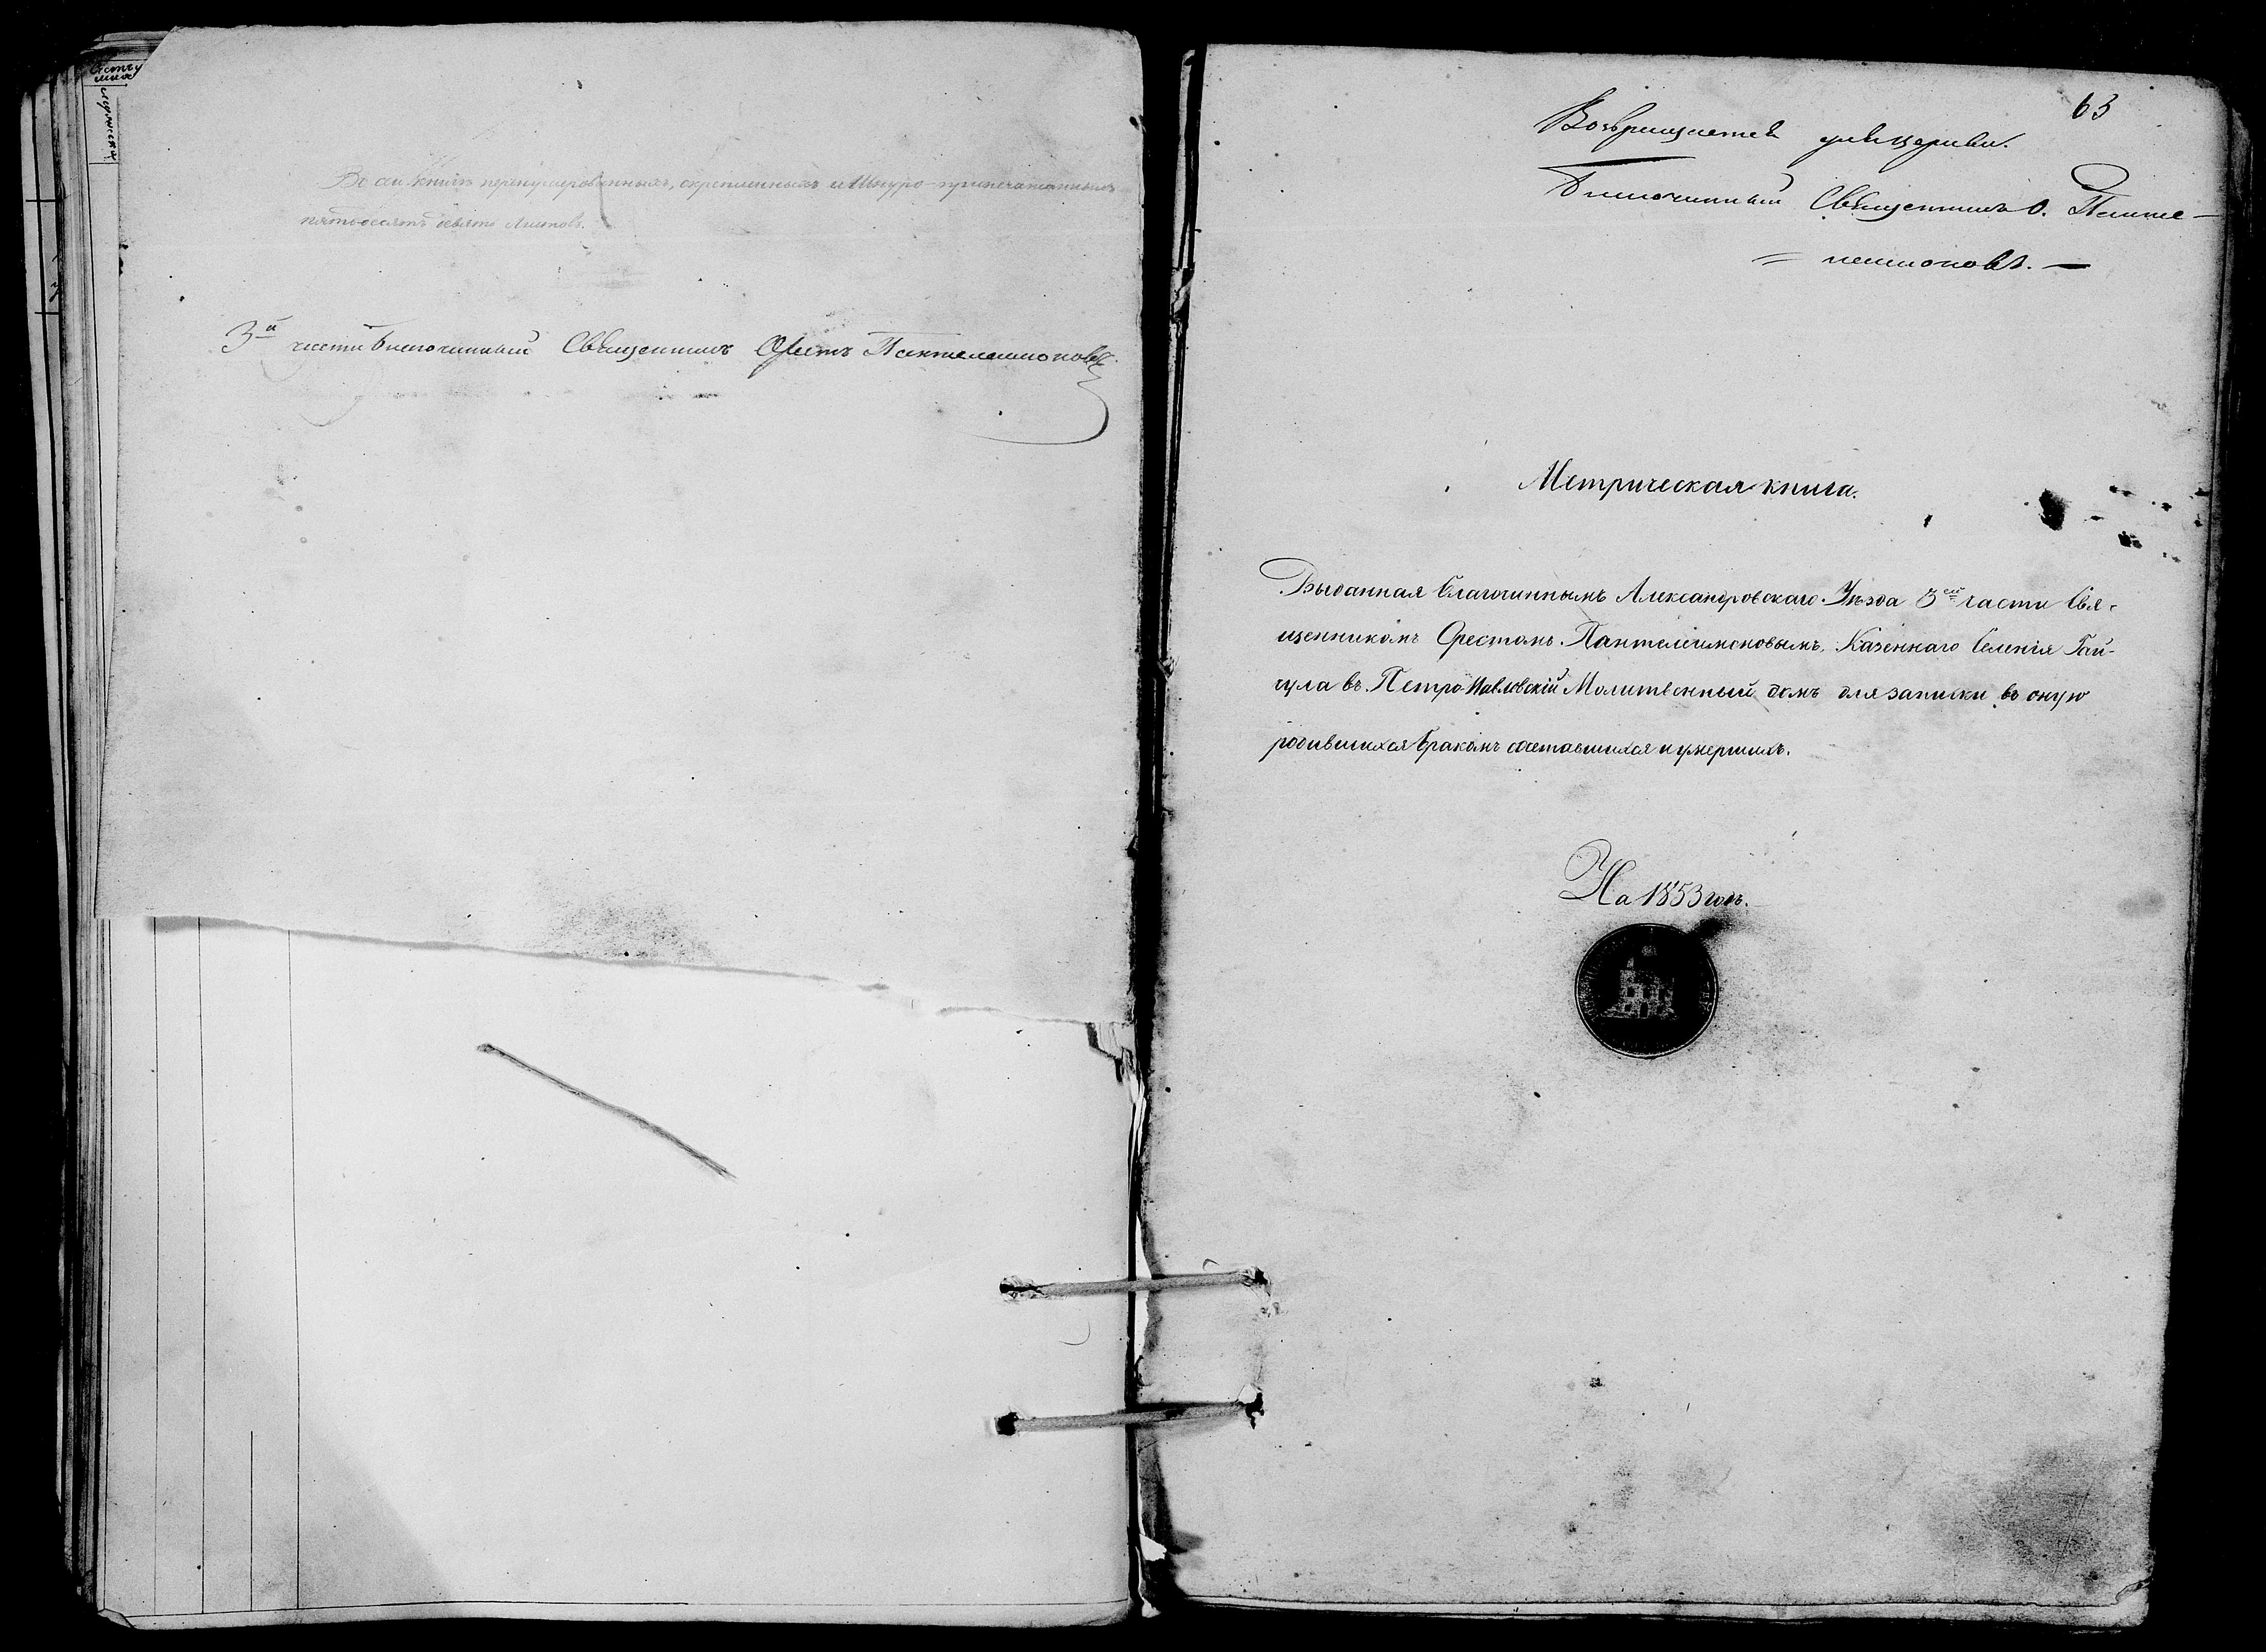 Во сей книги перенумерованныхъ, скрепленныхъ и шнуро-припечатанныхъ
пятьдесятъ девять листовъ.
3й части Благочинный Священникъ Орестъ Пантелеимоновъ.
63
Возвращается для церкви.
Благочинный Священникъ О. Панте-
= леимоновъ. —
Метрическая книга.
Выданная Благочиннымъ Александровскаго Уѣзда 3ей части Свя-
щенникомъ Орестомъ Пантелеимоновымъ, Казеннаго Селенія Гай-
чула въ Петро-Павловскій Молитвенный домъ для записки въ оную
родившихся бракомъ сочетавшихся и умершихъ.
На 1853 годъ.